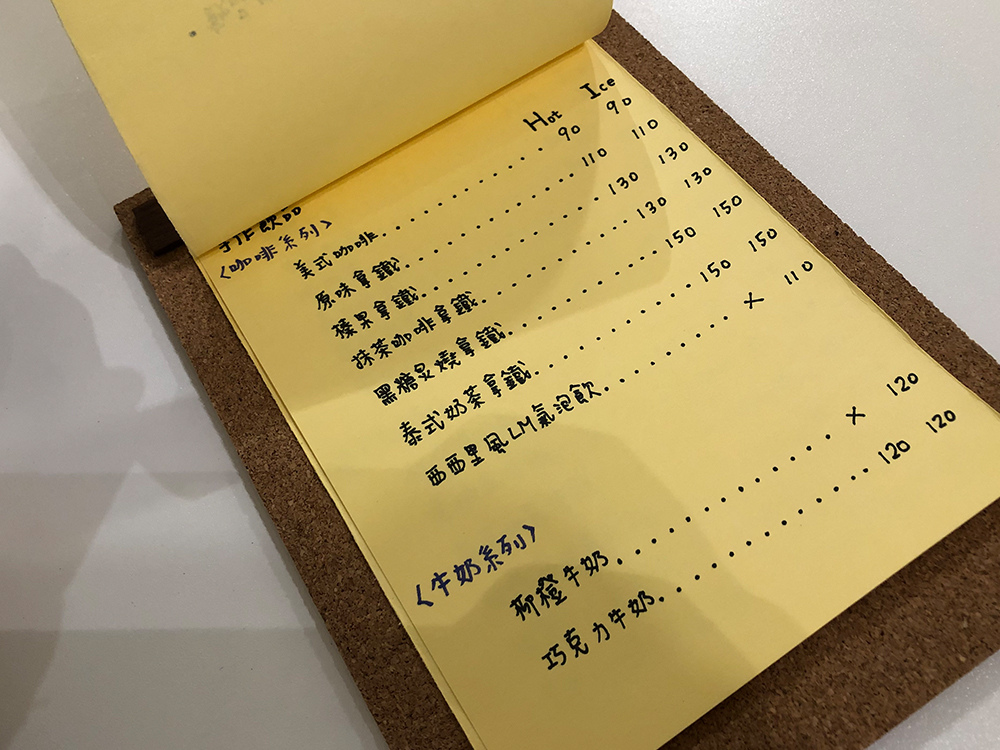 Hot Ice
手作飲品
〈咖啡系列〉
美式咖啡.................. 90 90
原味拿鐵.................. 110 110
榛果拿鐵.................. 130 130
抹茶咖啡拿鐵.................. 130 130
黑糖炙燒拿鐵.................. 150 150
泰式奶茶拿鐵.................. 150 150
西西里風LM氣泡飲.......... × 110
〈牛奶系列〉
柳橙牛奶.................. × 120
巧克力牛奶.................. 120 120